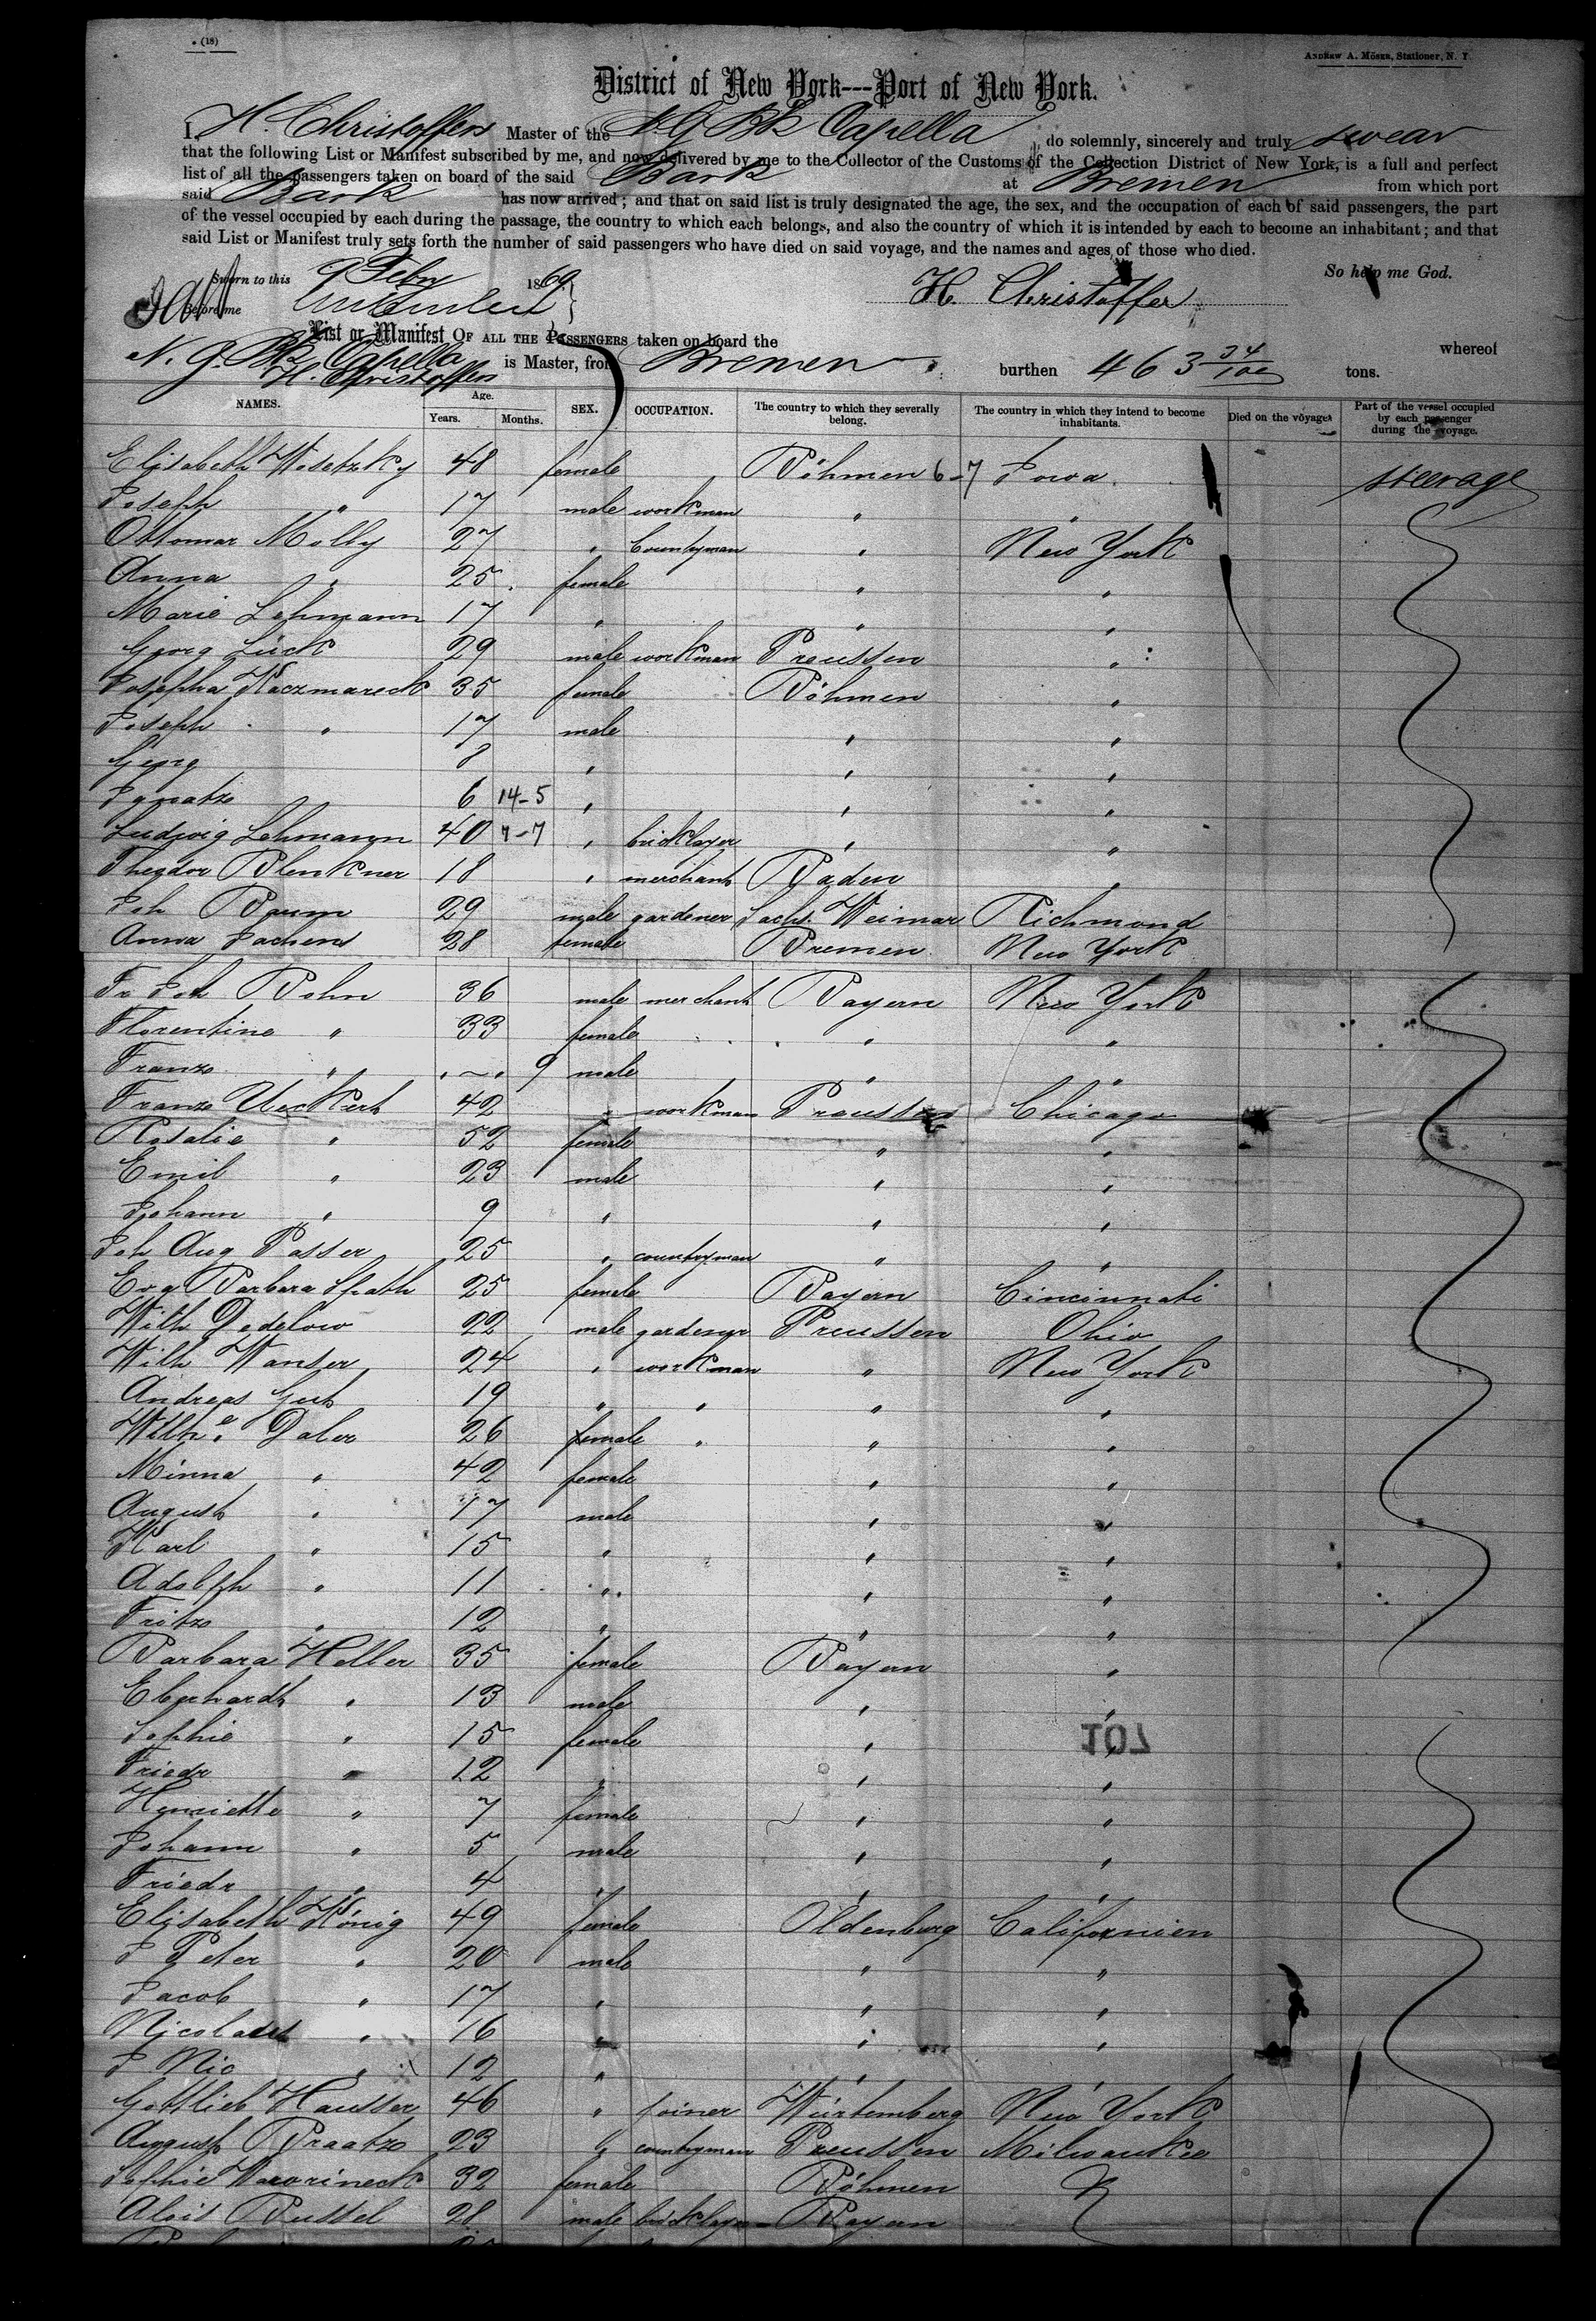 (18)
ANDREW A. MÖSER, Stationer, N. Y.
District of New York---Port of New York.
I, H. Christoffers Master of the N. G. Bk Capella do solemnly, sincerely and truly swear
that the following List or Manifest subscribed by me, and now delivered by me to the Collector of the Customs of the Collection District of New York, is a full and perfect
list of all the passengers taken on board of the said Bark at Bremen from which port
said Bark has now arrived; and that on said list is truly designated the age, the sex, and the occupation of each of said passengers, the part
of the vessel occupied by each during the passage, the country to which each belongs, and also the country of which it is intended by each to become an inhabitant; and that
said List or Manifest truly sets forth the number of said passengers who have died on said voyage, and the names and ages of those who died.
So help me God.
Sworn to this 9 Feby 1869
Before me
H. Christoffers
List or Manifest OF ALL THE PASSENGERS taken on board the
N. G. Bk Capella whereof
H. Christoffers is Master, from Bremen burthen 463 34/100 tons.
NAMES. Age. Years. Months. SEX. OCCUPATION. The country to which they severally belong. The country in which they intend to become inhabitants. Died on the voyage. Part of the vessel occupied by each passenger during the voyage.
Elisabeth Wosetzky 48 female Böhmen 6-7 Iowa. steerage
Joseph " 17 male workman " "
Ottomar Molly 27 " Countryman " New York
Anna " 25 female " "
Marie Lehmann 17 " " "
Georg Lück 29 male workman Preussen "
Josepha Kaczmareck 35 female Böhmen "
Joseph " 17 male " "
Georg 8 " " "
Ignatz 6 14-5 " " "
Ludwig Lehmann 40 7-7 " bricklayer " "
Theodor Blenkner 18 " merchant Baden "
Joh Baum 29 male gardener Sachs. Weimar Richmond
Anna Jachens 28 female Bremen New York
Fr Joh Bohn 36 male merchant Bayern New York
Florentine " 33 female " "
Franz " 9 male " "
Franz Ueckert 42 " workman Preussen Chicago
Rosalie " 52 female " "
Emil " 23 male " "
Johann " 9 " " "
Joh Aug Passer 25 " countryman " "
Eva Barbara Spath 25 female Bayern Cincinnati
Wilh Dedelow 22 male gardener Preussen Ohio
Wilh Wanser 24 " workman " New York
Andreas Gut 19 " " " "
Wilhe Daber 26 female " " "
Minna " 42 female " "
August " 17 male " "
Karl " 15 " " "
Adolph " 11 " " "
Fritz " 12 " " "
Barbara Heller 35 female Bayern "
Eberhardt " 13 male " "
Sophie " 15 female " "
107
Friedr " 12 " " "
Henriette " 7 female " "
Johann " 5 male " "
Friedr " 4 " " "
Elisabeth König 49 female Oldenburg Californien
J Peter " 20 male " "
Jacob " 17 " " "
Nicolaus " 16 " " "
J Nic " 12 " " "
Gottlieb Hausser 46 " joiner Würtemberg New York
August Braatz 23 " countryman Preussen Milwaukee
Sophie Wawrineck 32 female Böhmen
Alois Bussel 28 male bricklayer Bayern